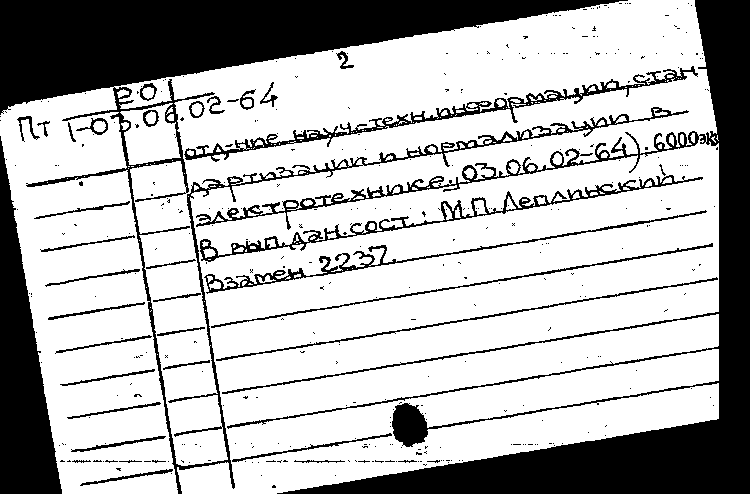 2
20
Пт 1-03.06.02-64
отд-ние науч.-техн.информации, стан-
дартизации и нормализации в
электротехнике.,03.06.02-64).6000экз
В вып.дан.сост.: М.П.Леплинский.
Взамен 2237.